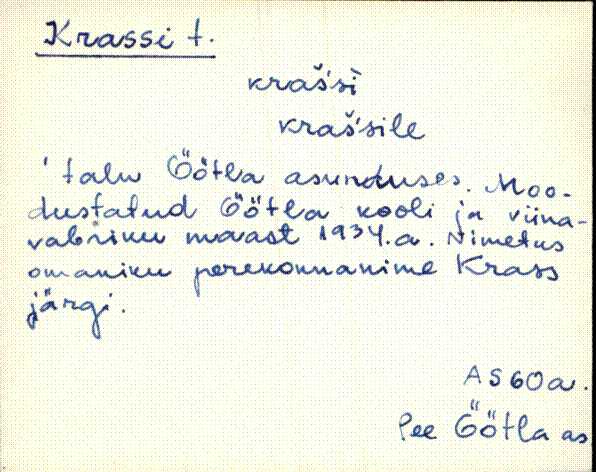 Krassi t.
kraśśi
kraśśile
' talu Öötla asunduses. Moo-
dustatud Öötla kooli ja viina-
vabriku maast 1934.a. Nimetus
omaniku perekonnanime Krass
järgi.
AS 60a.
Pee Öötla as